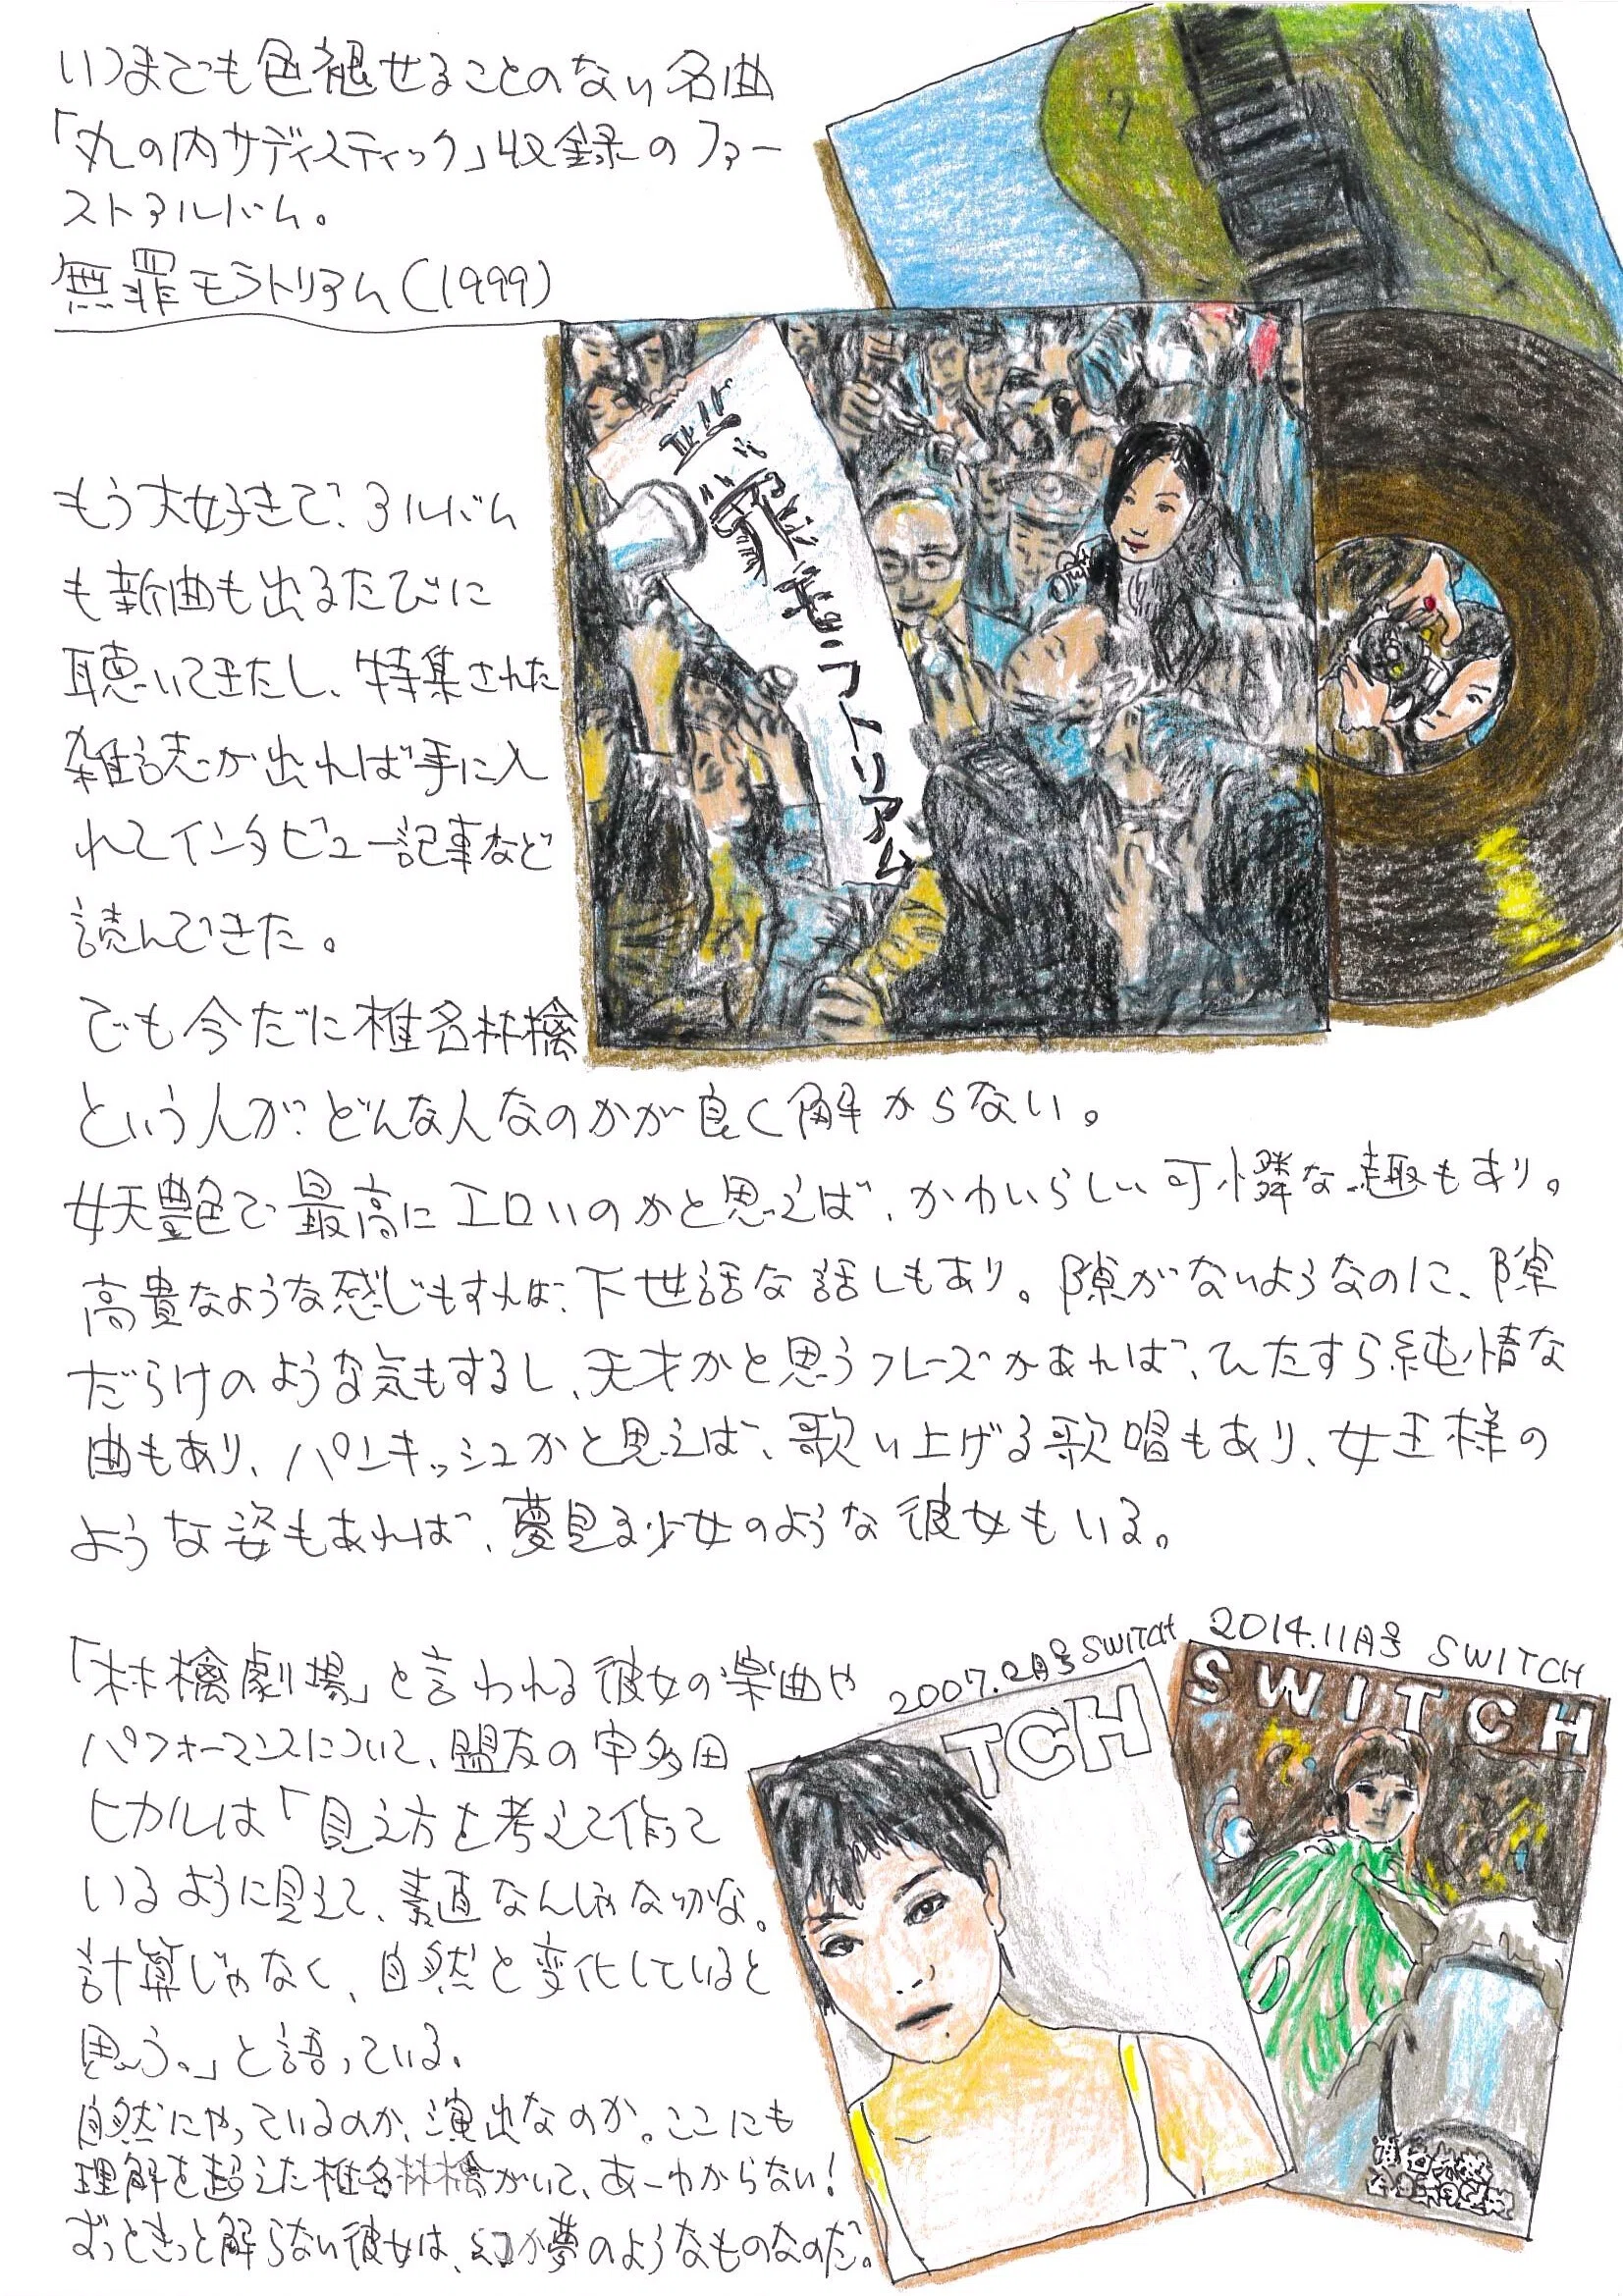 いつまでも色褪せることのない名曲
「丸の内サディスティック」収録のファー
ストアルバム。
無罪モラトリアム(1999)
無罪モラトリアム
もう大好きで、アルバム
も新曲も出るたびに
聴いてきたし、特集された
雑誌が出れば手に入
れてインタビュー記事など
読んできた。
でも今だに椎名林檎
という人が、どんな人なのかが良く解からない。
妖艶で最高にエロいのかと思えば、かわいらしい可憐な趣もあり。
高貴なような感じもすれば、下世話な話しもあり。隙がないようなのに、隙
だらけのような気もするし、天才かと思うフレーズがあれば、ひたすら純情な
曲もあり、パンキッシュかと思えば、歌い上げる歌唱もあり、女王様の
ような姿もあれば、夢見る少女のような彼女もいる。
「林檎劇場」と言われる彼女の楽曲や
パフォーマンスについて、盟友の宇多田
ヒカルは「見え方を考えて作って
いるように見えて、素直なんじゃないかな。
計算じゃなく、自然と変化していると
思う。」と語っている。
自然にやっているのか、演出なのか。ここにも
理解を超えた椎名林檎がいて、あーわからない!
ずっときっと解らない彼女は、幻か夢のようなものなのだ。
2007.2月号 SWITCH
TCH
2014.11月号 SWITCH
SWITCH